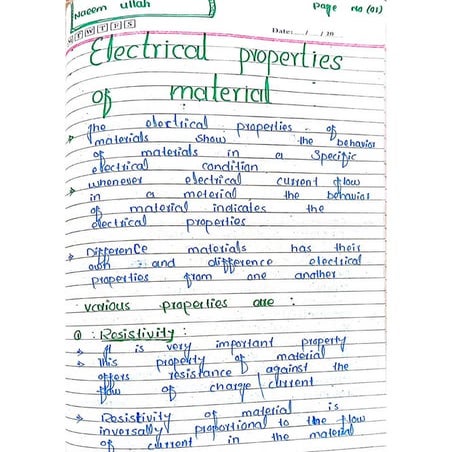 Naeem ullah
Page no (01)
M T W T F S
Date: __/__/20__
Electrical properties
of material
The electrical properties of
materials show the behavior
of materials in a specific
electrical condition
whenever electrical current flow
in a meterial the behavior
of material indicales the
electrical properties
Difference materials has their
own and difference electrical
properties from one another
various properties are :
① : Resistivity :
It is very important property
This property of material
offers resistance against the
flow of charge / current
Resistivity of material is
inversally proportional to the flow
of current in the material